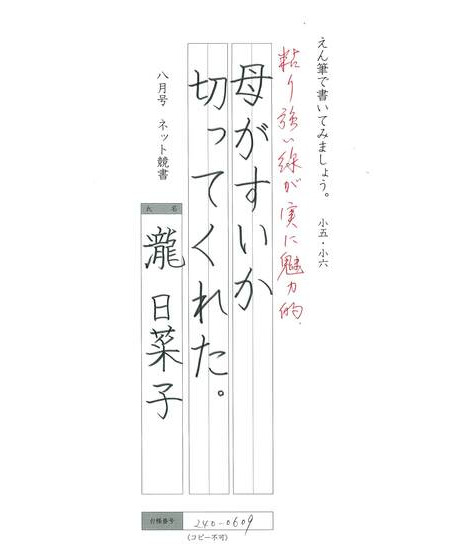 えん筆で書いてみましょう。 小五・小六
粘り強い線が実に魅力的.
母がすいか
切ってくれた。
八月号 ネット競書
氏 名
瀧 日菜子
行様番号 240-0609
(コピー不可)